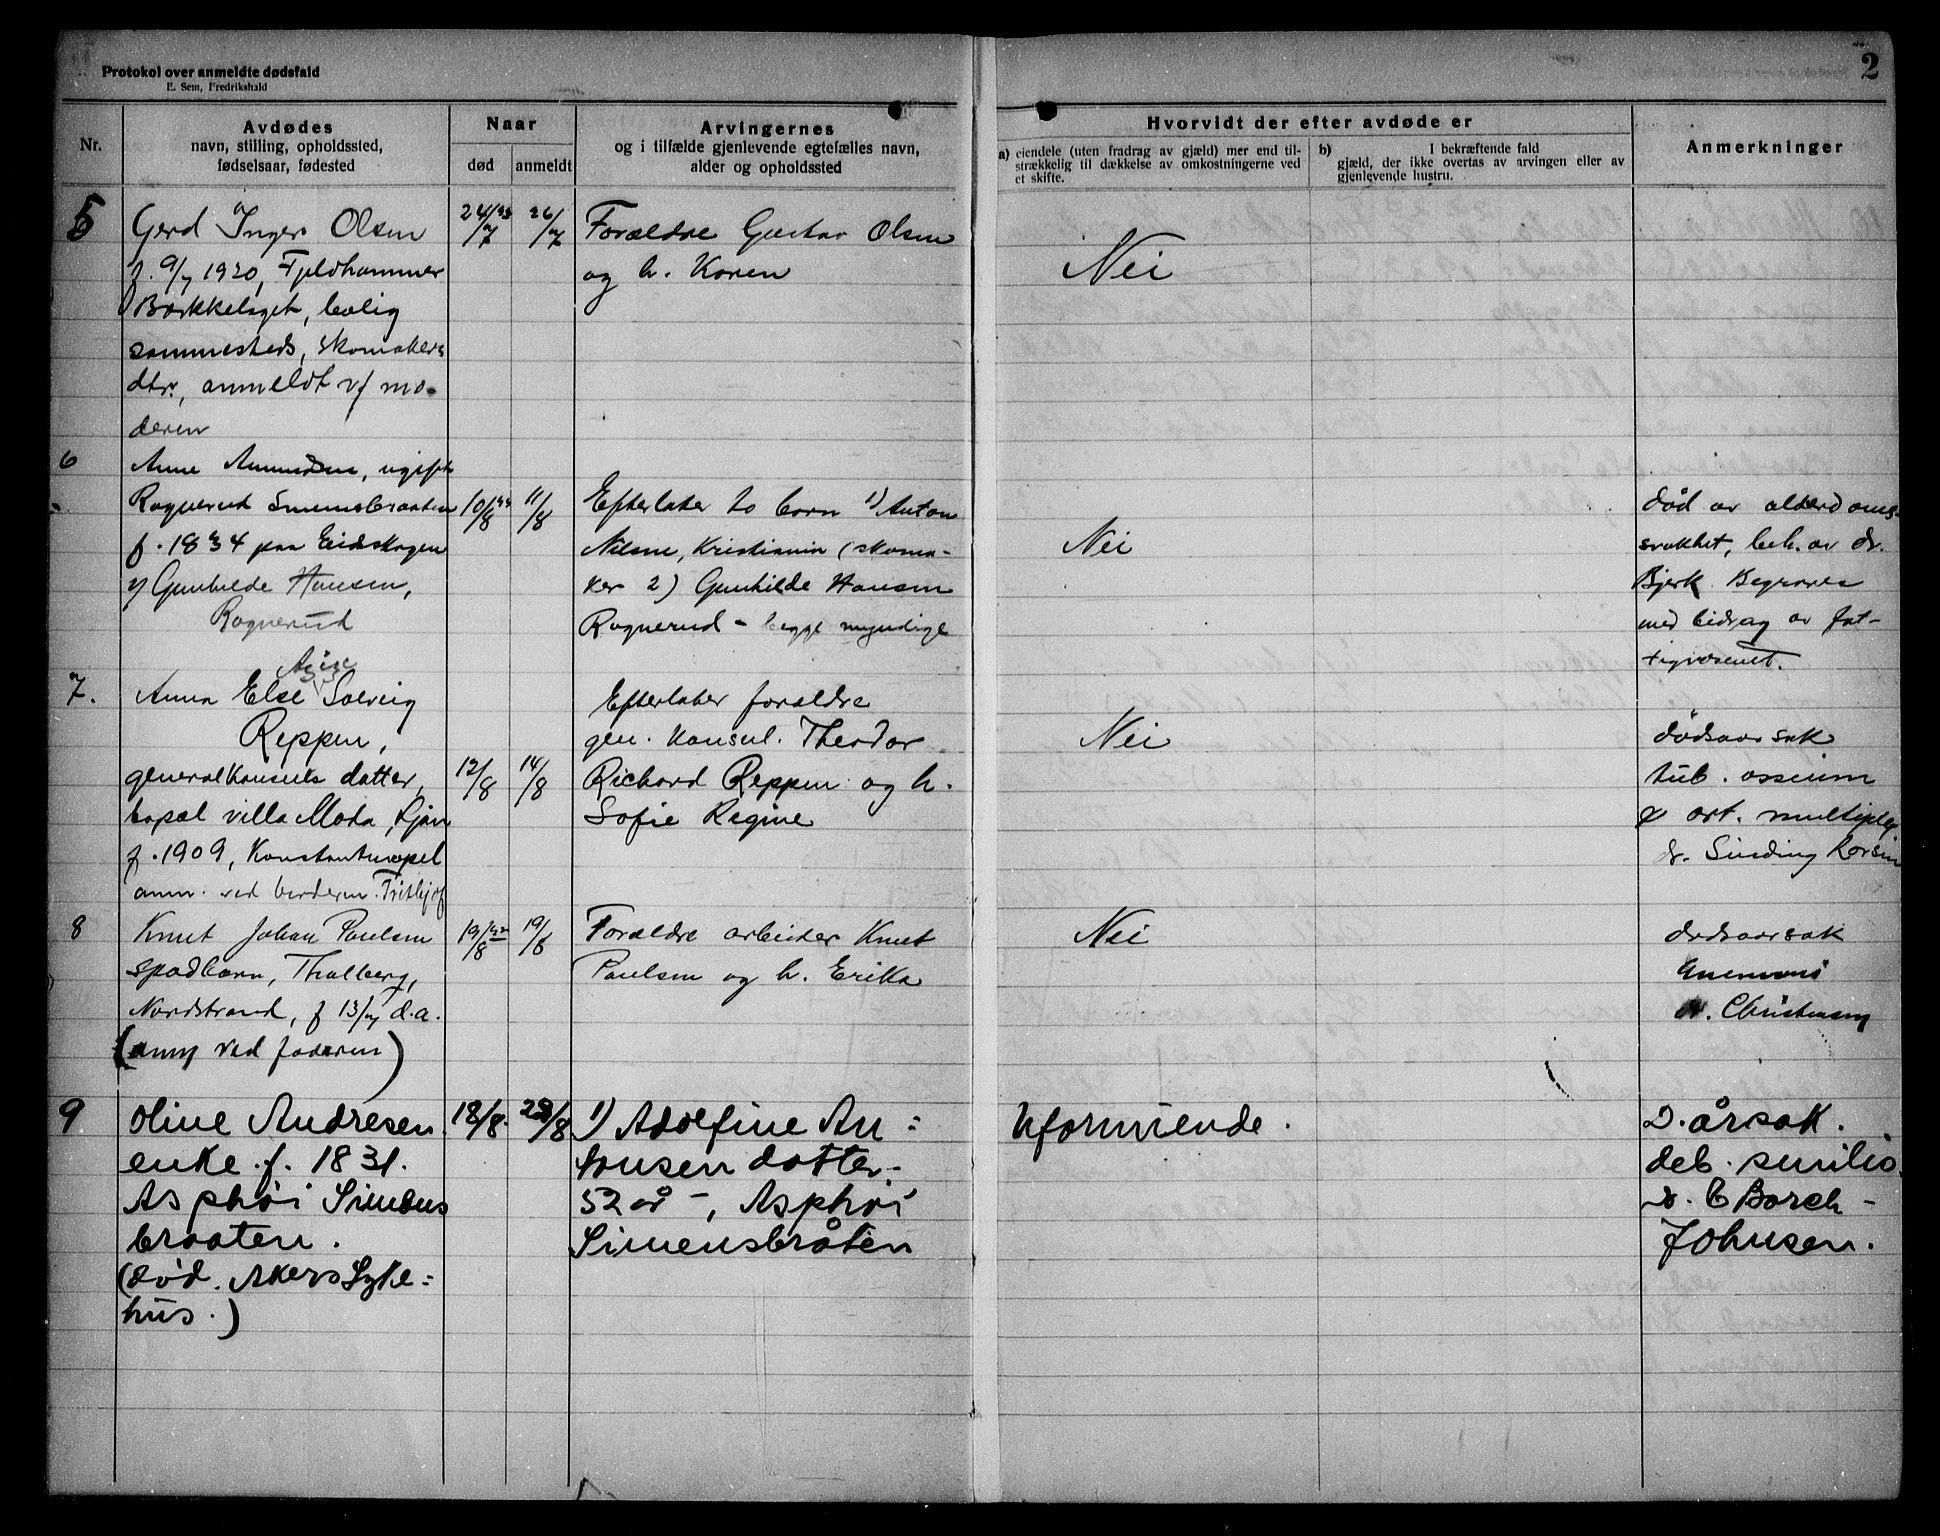 Protokol over anmeldte dødsfald
E. Sem, Fredrikshald
2
Nr.
Avdødes
navn, stilling, opholdssted,
fødselsaar, fødested
Naar
død
anmeldt
Arvingernes
og i tilfælde gjenlevende egtefælles navn,
alder og opholdssted
Hvorvidt der efter avdøde er
a) eiendele (uten fradrag av gjæld) mer end til-
strækkelig til dækkelse av omkostningerne ved
et skifte.
b) I bekræftende fald
gjæld, der ikke overtas av arvingen eller av
gjenlevende hustru.
Anmerkninger
5
Gerd Inger Olsen
f. 9/7 1920, Fjeldhammer
Bækkelaget, bolig
sammesteds, skomakers
dtr., anmeldt v/ mo-
deren
24/7
26/7
Forældre Gustav Olsen
og h. Karen
Nei
6
Anne Amundsen, ugift
Rognerud Simensbraaten
f. 1834 paa Eidskogen
v/ Gunhilde Hansen,
Rognerud
10/8
11/8
Efterlater to barn 1) Anton
Nilsen, Kristiania (skoma-
ker 2) Gunhilde Hansen
Rognerud - begge myndige
Nei
død av alderdoms-
svakhet, beh. av dr.
Bjerk. Begraves
med bidrag av fat-
tigvæsenet.
7.
Anna Else Solveig
Reppen,
generalkonsuls datter,
bopæl villa Moda, Ljan
f. 1909, Konstantinopel
anm. ved broderen Frithjof
12/8
14/8
Efterlater forældre
gen. konsul. Theodor
Richard Reppen og h.
Sofie Regine
Nei
dødsaarsak
tub. ossium
& art. multiplex
dr. Sinding Larsen
8
Knut Johan Paulsen
spædbarn, Thalberg,
Nordstrand, f 13/7 d.a.
(anm ved faderen)
19/8
19/8
Forældre arbeider Knut
Paulsen og h. Erika
Nei
dødsaarsak
dr. Christensen
9
Oline Andresen
enke. f. 1831.
Asphøi Simens
braaten.
(død. Akers Syke=
hus.)
18/8.
/8
1) Adolfine An=
tonsen datter.
52 år -, Asphøi
Simensbråten
Uformuende.
D. årsak.
deb. senilis.
dr. C Borch-
Johnsen.